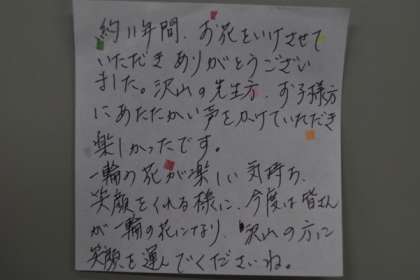 約11年間、お花をいけさせて
いただきありがとうござい
ました。沢山の先生方、お子様方
にあたたかい声をかけていただき
楽しかったです。
一輪の花が楽しい気持ち、
笑顔をくれる様に、今度は皆さん
が一輪の花になり、沢山の方に
笑顔を運んでくださいね。